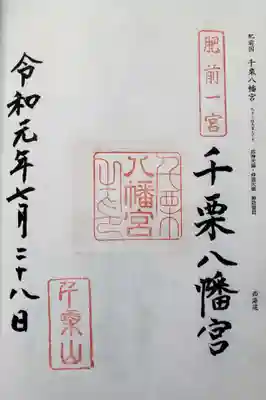 肥前国 千栗八幡宮
西海道
肥前一宮
千栗八幡宮
八幡宮
千栗山
令和元年七月二十八日